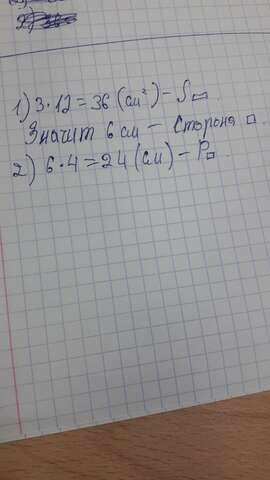 1) 3·12=36 (см²) – S▭
Значит 6 см – сторона □.
2) 6·4=24 (см) – P□